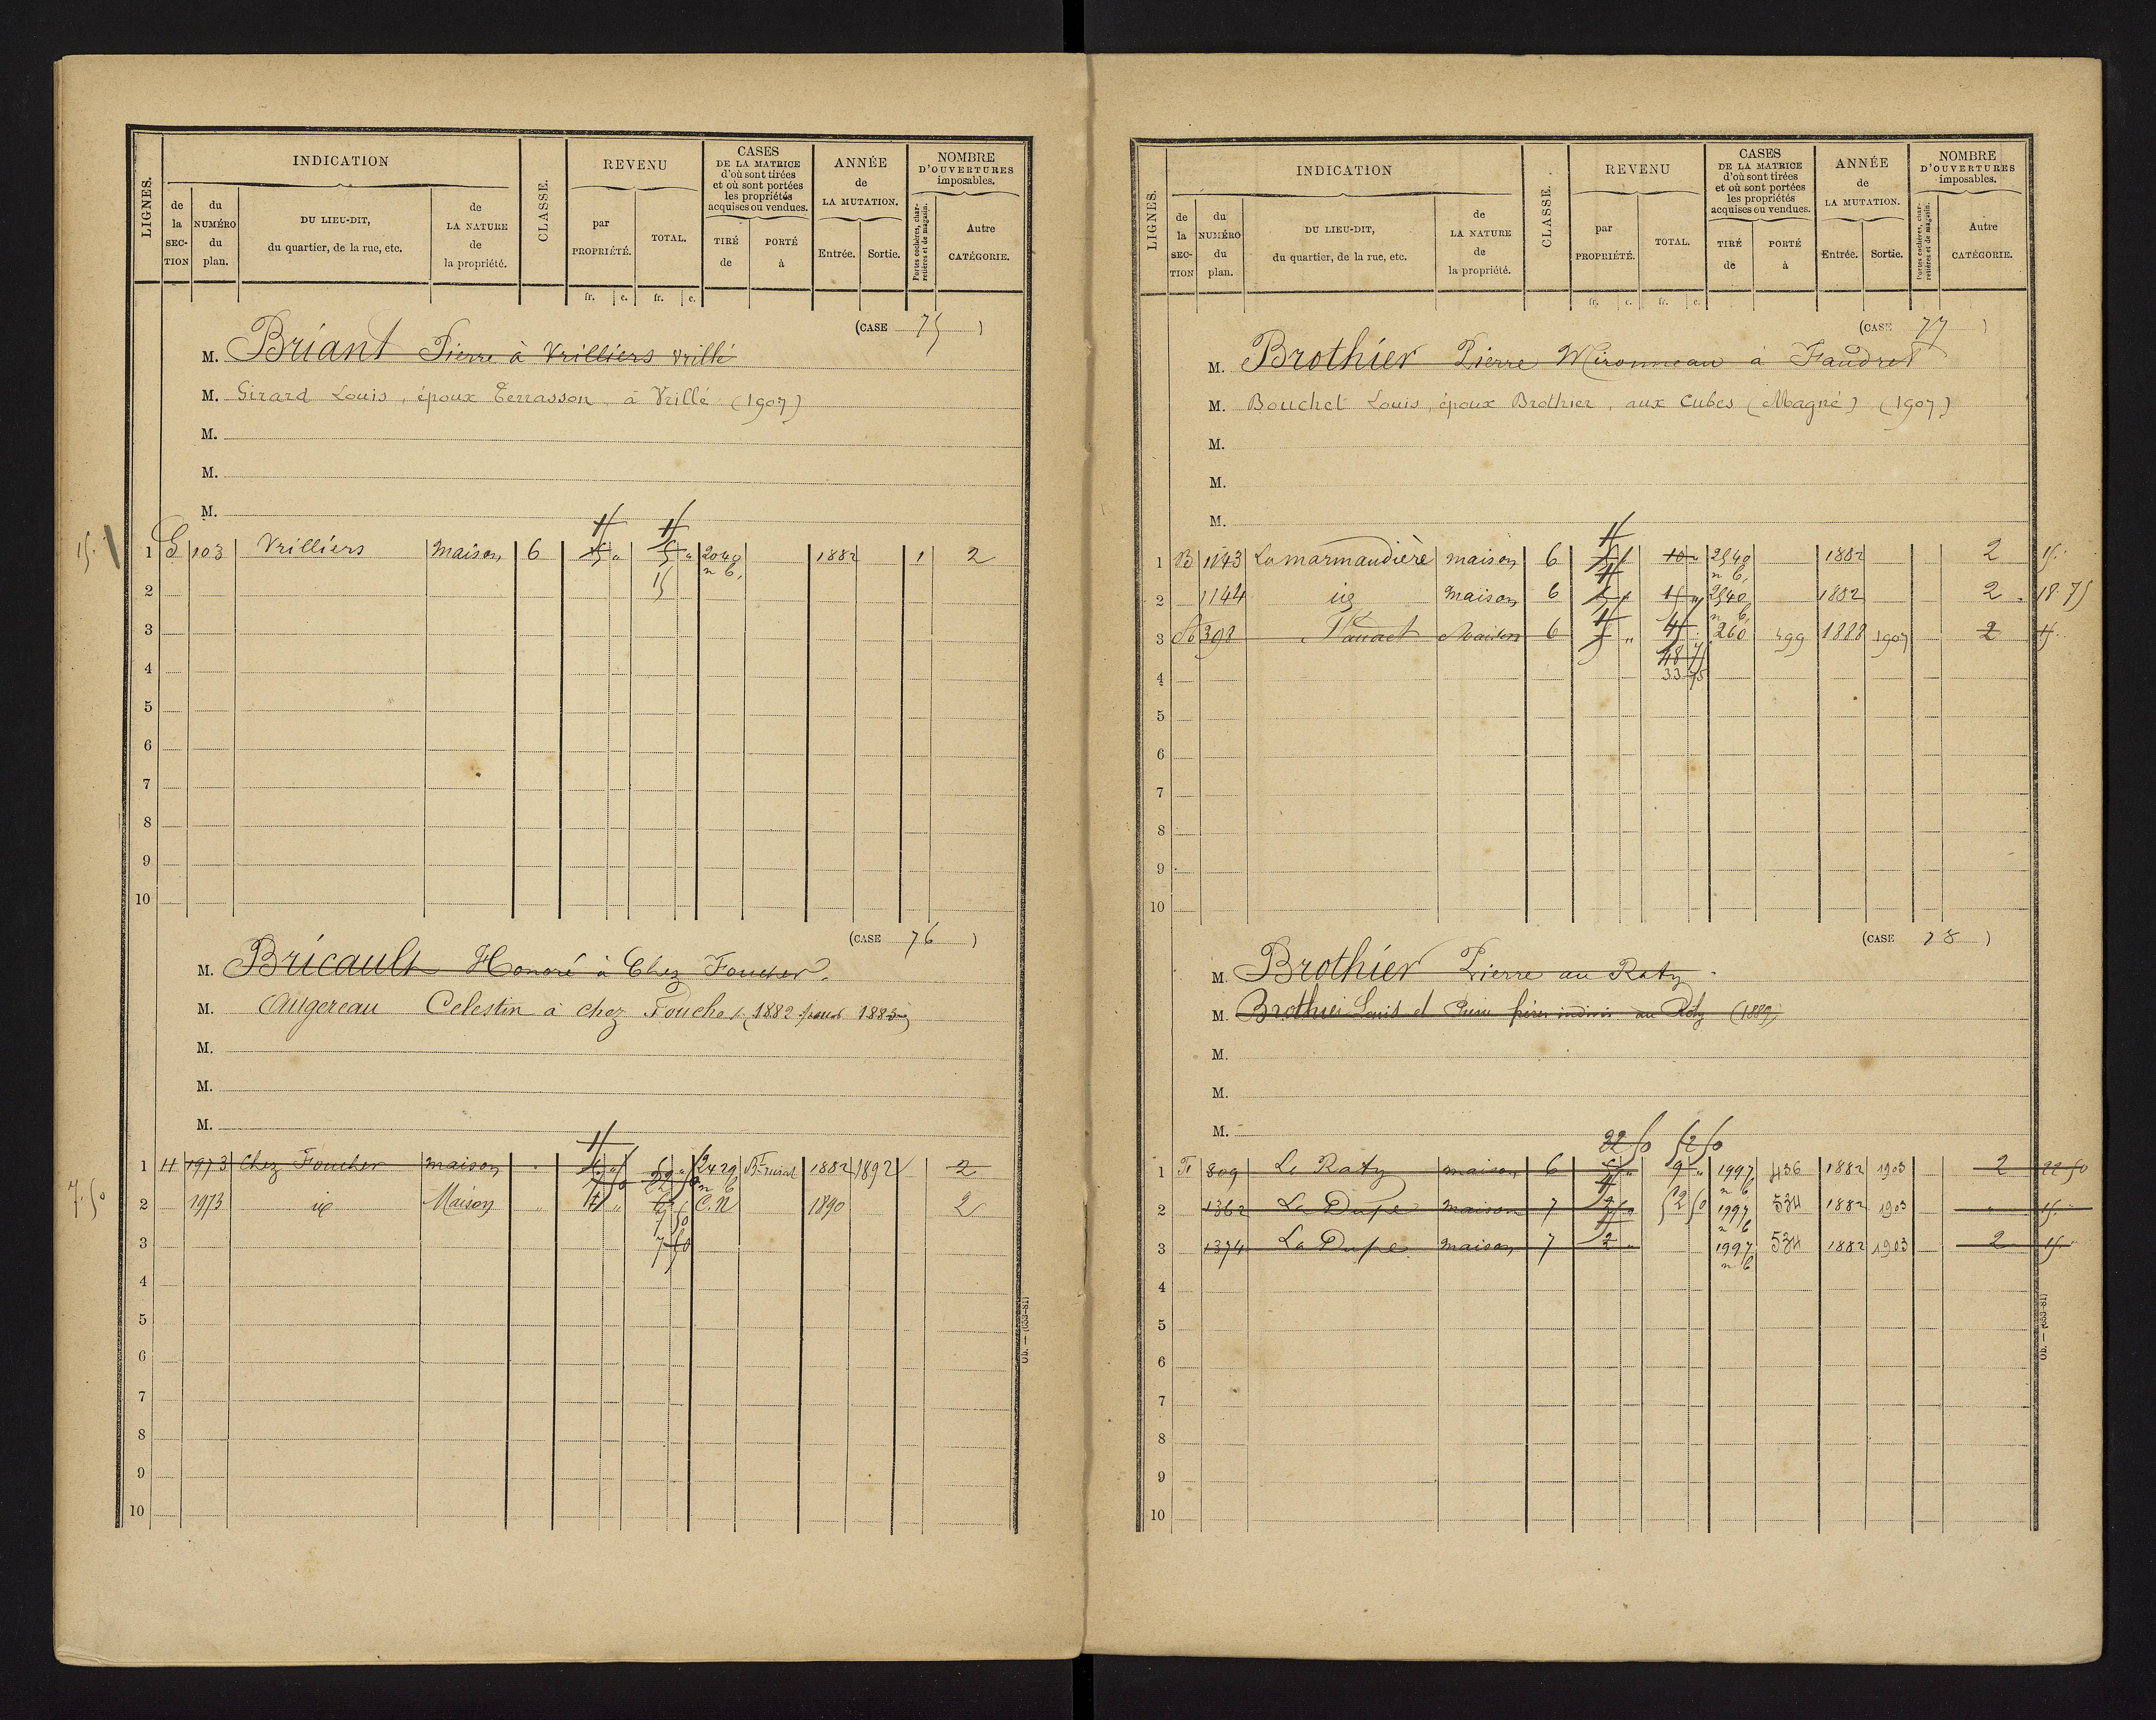 LIGNES. INDICATION CLASSE. REVENU CASES DE LA MATRICE d'où sont tirées et où sont portées les propriétés acquises ou vendues. ANNÉE de LA MUTATION. NOMBRE D'OUVERTURES imposables.
de la SECTION du NUMÉRO du plan. DU LIEU-DIT, du quartier, de la rue, etc. de LA NATURE de la propriété. par PROPRIÉTÉ. TOTAL. TIRÉ de PORTÉ à Entrée. Sortie. Portes cochères, charretières et de magasin. Autre CATÉGORIE.
fr. c. fr. c.
(CASE 75)
M. Briant Pierre à Vrilliers Vrillé
M. Girard Louis, époux Terrasson, à Vrillé (1907)
M.
M.
M.
15. 1 G 103 Vrilliers maison 6 2040 1882 1 2
n b. 15
2
3
4
5
6
7
8
9
10
(CASE 76)
M. Bricault Honoré à Chez Foucher.
M. Augereau Celestin à chez Foucher (1882 pour 1883)
M.
M.
M.
1 H 1973 Chez Foucher maison 2429 1882 1892 2
n b
7.50 2 1973 id Maison C.N 1890 2
7 50
3 7 50
4
5
6
7
8
9
10
Ob. — (653-81)
LIGNES. INDICATION CLASSE. REVENU CASES DE LA MATRICE d'où sont tirées et où sont portées les propriétés acquises ou vendues. ANNÉE de LA MUTATION. NOMBRE D'OUVERTURES imposables.
de la SECTION du NUMÉRO du plan. DU LIEU-DIT, du quartier, de la rue, etc. de LA NATURE de la propriété. par PROPRIÉTÉ. TOTAL. TIRÉ de PORTÉ à Entrée. Sortie. Portes cochères, charretières et de magasin. Autre CATÉGORIE.
fr. c. fr. c.
(CASE 77)
M. Brothier Pierre Mironneau à Faudret
M. Bouchet Louis, époux Brothier, aux Cubes (Magné) (1907)
M.
M.
M.
1 B 1143 La marmaudière maison 6 10 2540 1882 2 15.
n b.
2 1144 id maison 6 15 2540 1882 2 18.75
n b.
3 398 Faudret Maison 6 260 499 1888 1907 2 15.
48 75
4 33 75
5
6
7
8
9
10
(CASE 78)
M. Brothier Pierre au Raty.
M. Brothier Louis et Pierre frères indivis au Raty (1889)
M.
M.
M.
22 50 52 50
1 809 Le Raty maison 6 9 1997 436 1882 1903 2 22 50
n b
2 1362 La Dupe maison 7 52 50 1997 534 1882 1903 15.
n b
3 1374 La Dupe maison 7 2 1997 534 1882 1903 2 15.
n b
4
5
6
7
8
9
10
Ob. — (653-81)